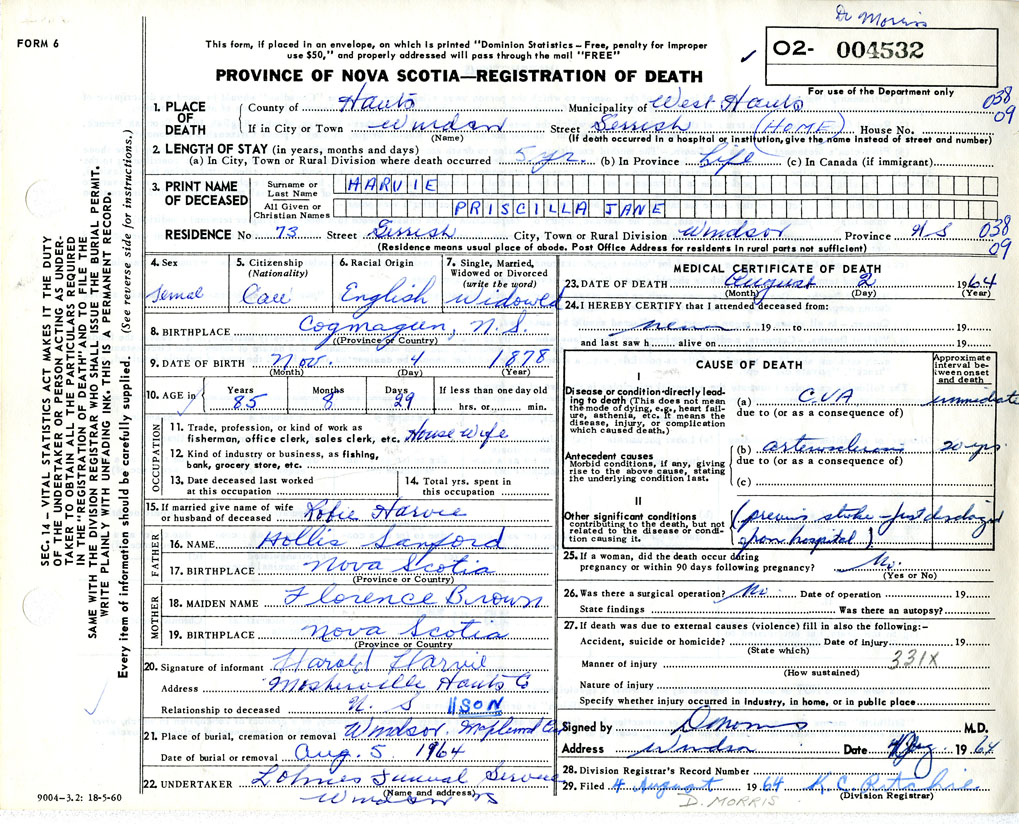 Dr Morris
FORM 6
This form, if placed in an envelope, on which is printed "Dominion Statistics – Free, penalty for improper
use $50," and properly addressed will pass through the mail "FREE"
02- 004532
PROVINCE OF NOVA SCOTIA—REGISTRATION OF DEATH
For use of the Department only
038
09
1. PLACE OF DEATH
County of Hants Municipality of West Hants
If in City or Town Windsor Street Gerrish (HOME) House No.
(Name) (If death occurred in a hospital or institution, give the name instead of street and number)
2. LENGTH OF STAY (in years, months and days)
(a) In City, Town or Rural Division where death occurred 5 yr. (b) In Province Life (c) In Canada (if immigrant)
3. PRINT NAME OF DECEASED
Surname or Last Name HARVIE
All Given or Christian Names PRISCILLA JANE
RESIDENCE No 73 Street Gerrish City, Town or Rural Division Windsor Province N S
038
09
(Residence means usual place of abode. Post Office Address for residents in rural parts not sufficient)
4. Sex Femal
5. Citizenship (Nationality) Can
6. Racial Origin English
7. Single, Married, Widowed or Divorced (write the word) Widowed
8. BIRTHPLACE Cogmagun, N.S.
(Province or Country)
9. DATE OF BIRTH Nov. 4 1878
(Month) (Day) (Year)
10. AGE in Years 85 Months 8 Days 29 If less than one day old
hrs. or min.
OCCUPATION
11. Trade, profession, or kind of work as
fisherman, office clerk, sales clerk, etc. House wife
12. Kind of industry or business, as fishing,
bank, grocery store, etc.
13. Date deceased last worked
at this occupation
14. Total yrs. spent in
this occupation
15. If married give name of wife
or husband of deceased Kobie Harvie
FATHER
16. NAME Hollis Sanford
17. BIRTHPLACE Nova Scotia
(Province or Country)
MOTHER
18. MAIDEN NAME Florence Brown
19. BIRTHPLACE Nova Scotia
(Province or Country)
20. Signature of informant Harold Harvie
Address Mosherville Hants Co
N. S
Relationship to deceased SON
21. Place of burial, cremation or removal Windsor. Maplewood Cem
Date of burial or removal Aug. 5 1964
22. UNDERTAKER Lohnes Funeral Service
(Name and address) Windsor NS
MEDICAL CERTIFICATE OF DEATH
23. DATE OF DEATH August 2 1964
(Month) (Day) (Year)
24. I HEREBY CERTIFY that I attended deceased from:
19 to 19
and last saw h alive on 19
CAUSE OF DEATH
Approximate interval between onset and death
I
Disease or condition directly leading to death (This does not mean the mode of dying, e.g., heart failure, asthenia, etc. It means the disease, injury, or complication which caused death.)
(a) CVA immediate
due to (or as a consequence of)
Antecedent causes
Morbid conditions, if any, giving rise to the above cause, stating the underlying condition last.
(b) 20 yrs
due to (or as a consequence of)
(c)
II
Other significant conditions
contributing to the death, but not related to the disease or condition causing it.
(previous stroke - just discharged
from hospital)
25. If a woman, did the death occur during
pregnancy or within 90 days following pregnancy? No.
(Yes or No)
26. Was there a surgical operation? No. Date of operation 19
State findings Was there an autopsy?
27. If death was due to external causes (violence) fill in also the following:–
Accident, suicide or homicide? Date of injury 19
(State which)
331X
Manner of injury
(How sustained)
Nature of injury
Specify whether injury occurred in industry, in home, or in public place
Signed by D Morris M.D.
Address Windsor Date 4 Aug 1964
28. Division Registrar's Record Number
29. Filed 4 August 1964 R C Ritchie
D. MORRIS (Division Registrar)
SEC. 14 – VITAL STATISTICS ACT MAKES IT THE DUTY
OF THE UNDERTAKER OR PERSON ACTING AS UNDER-
TAKER TO OBTAIN ALL THE PARTICULARS REQUIRED
IN THE "REGISTRATION OF DEATH" AND TO FILE THE
SAME WITH THE DIVISION REGISTRAR WHO SHALL ISSUE THE BURIAL PERMIT.
WRITE PLAINLY WITH UNFADING INK. THIS IS A PERMANENT RECORD.
Every item of information should be carefully supplied. (See reverse side for instructions.)
9004–3.2: 18-5-60